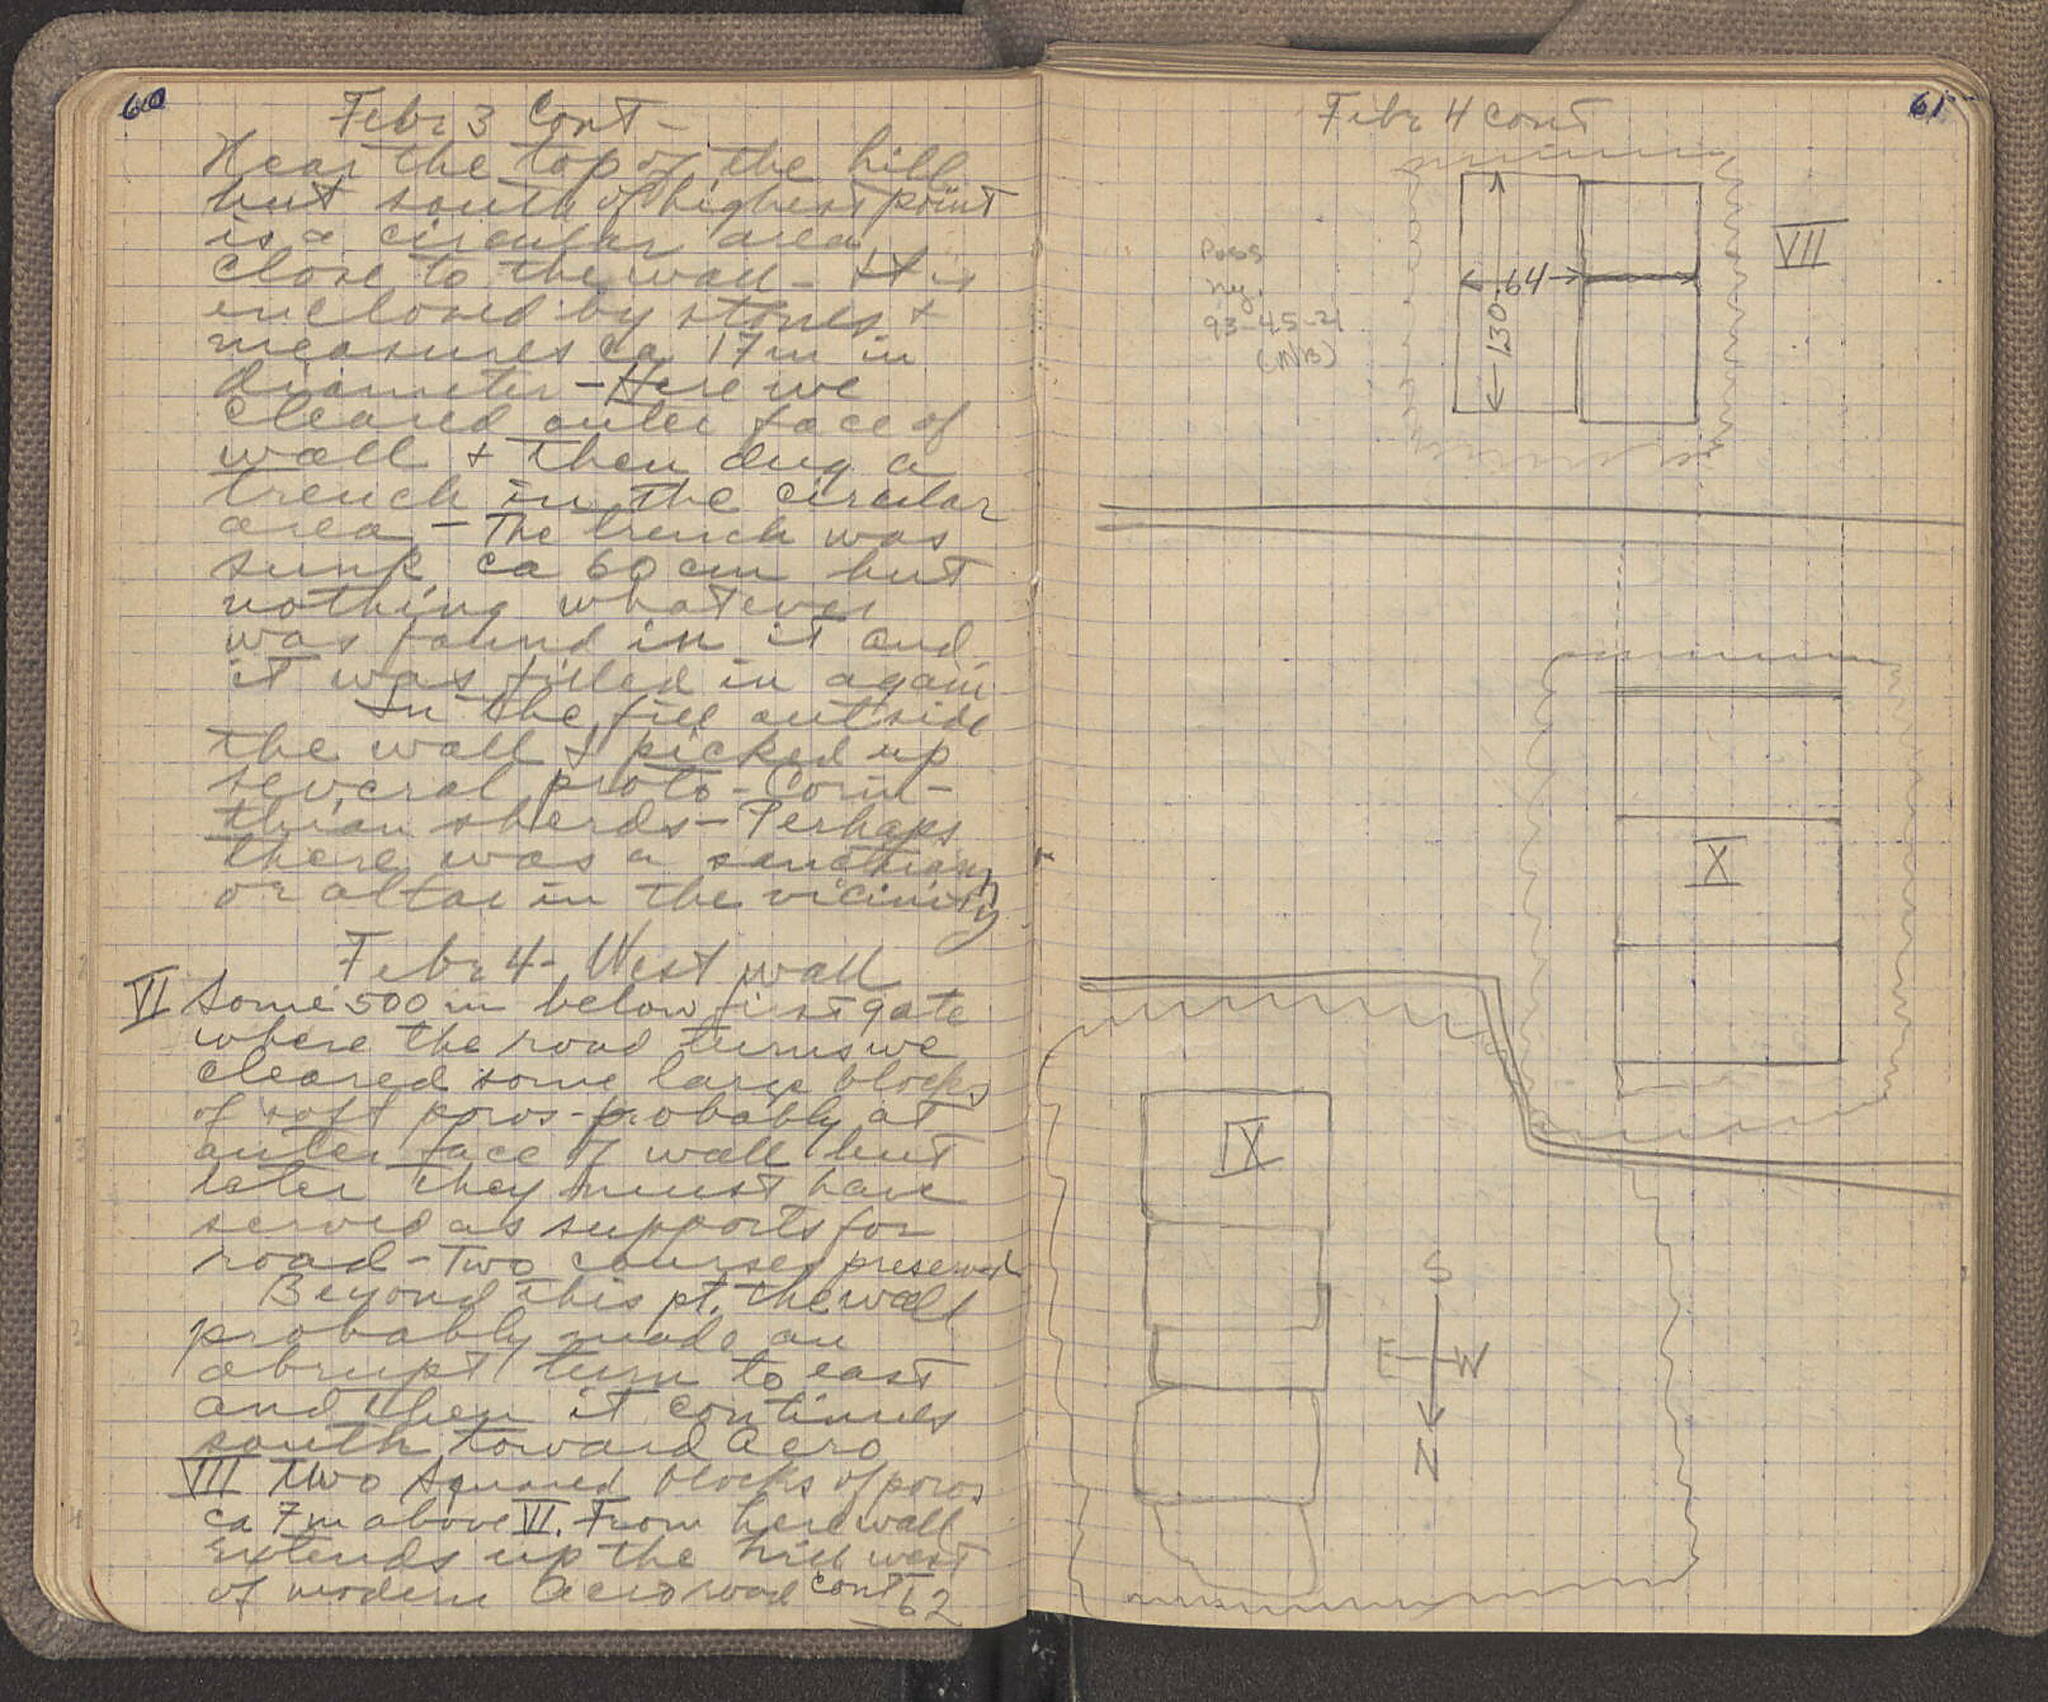 60
Febr 3 Cont -
Near the top of the hill
but south of highest point
is a circular area
close to the wall - It is
enclosed by stones +
measures ca 17 m in
diameter - Here we
cleared outer face of
wall + then dug a
trench in the circular
area - The trench was
sunk ca 60 cm but
nothing whatever
was found in it and
it was filled in again
In the fill outside
the wall I picked up
several proto-Corin-
thian sherds - Perhaps
there was a sanctuary
or altar in the vicinity
Febr 4 - West wall
VI Some 500 m below first gate
where the road turns we
cleared some large blocks
of soft poros - probably at
outer face of wall but
later they must have
served as supports for
road - Two courses preserved
Beyond this pt. the wall
probably made an
abrupt turn to east
and then it continues
south toward Acro
VII Two squared blocks of poros
ca 7 m above VI. From here wall
extends up the hill west
of modern Acro road cont 62
61
Febr 4 cont
VII
.64
1.30
Poss
neg.
93-45-21
(NB)
X
IX
S
E W
N